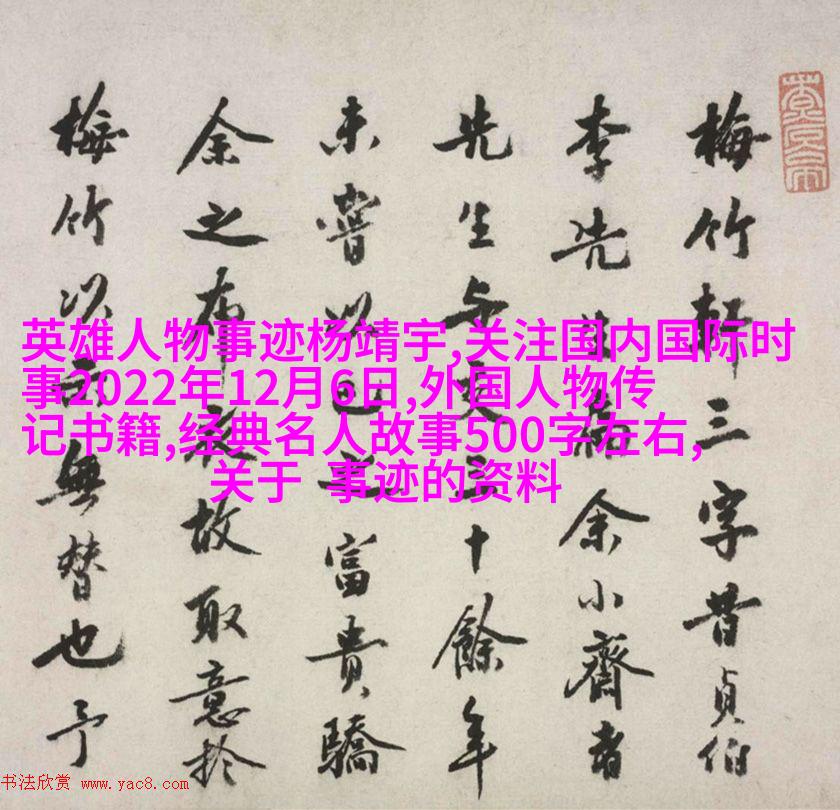 梅竹軒三字昔貞伯
李先生為余小齋書
先生與交三十餘年
未嘗以己之富貴驕
余之布衣故取意於
梅竹以示無替也予
英雄人物事迹杨靖宇,关注国内国际时
事2022年12月6日,外国人物传
记书籍,经典名人故事500字左右,
关于 事迹的资料
书法欣赏 www.yac8.com